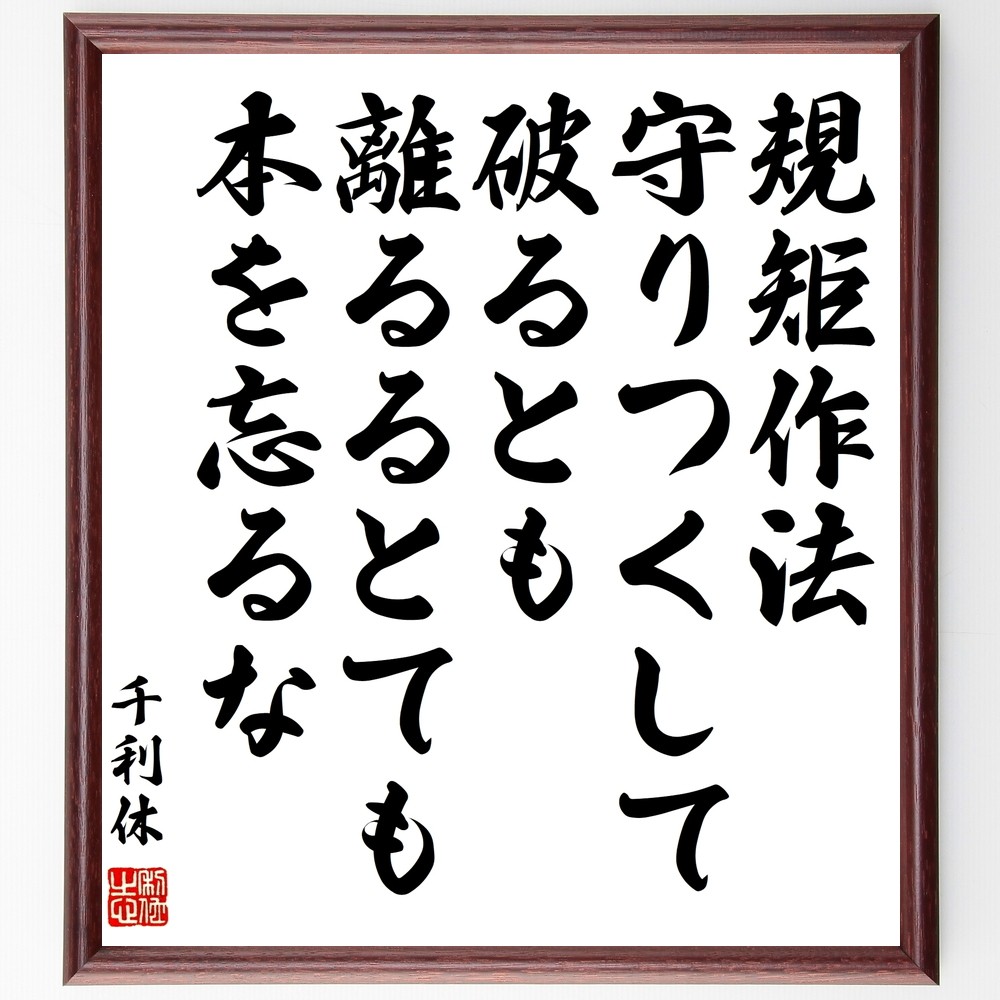 規矩作法
守りつくして
破るとも
離るるとても
本を忘るな
千利休